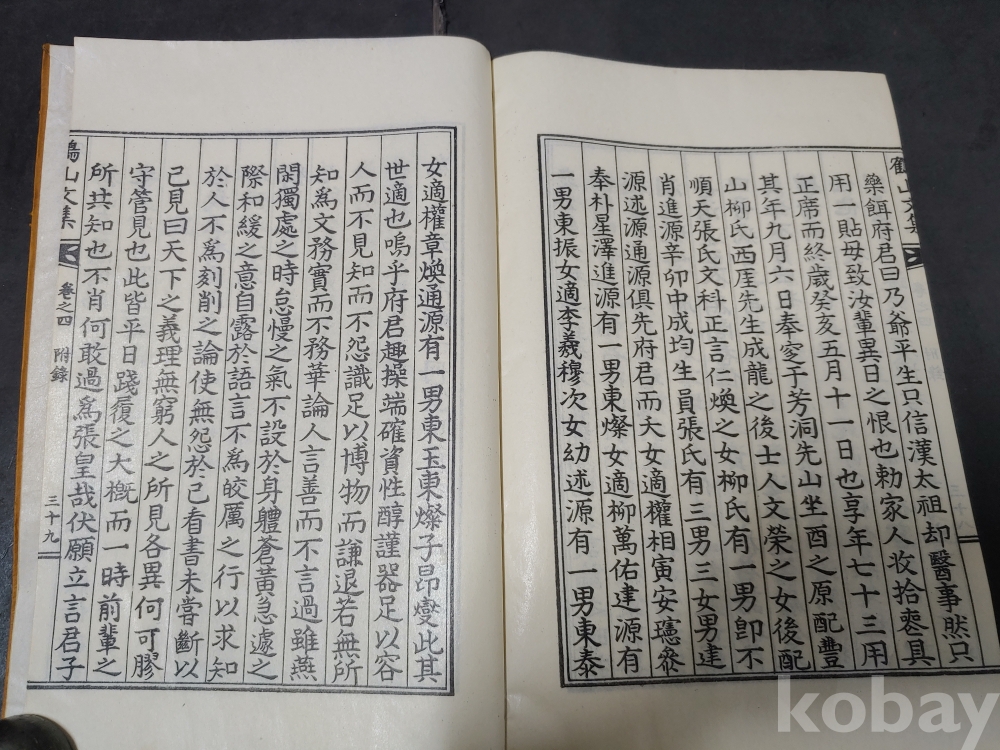 鶴山文集
藥餌府君曰乃爺平生只信漢太祖却醫事然只
用一貼毋致汝輩異日之恨也勅家人收拾喪具
正席而終歲癸亥五月十一日也享年七十三用
其年九月六日奉窆于芳洞先山坐酉之原配豐
山柳氏西厓先生成龍之後士人文榮之女後配
順天張氏文科正言仁煥之女柳氏有一男卽不
肖進源辛卯中成均生員張氏有三男三女男建
源述源通源俱先府君而夭女適權相寅安㻴叅
奉朴星澤進源有一男東燦女適柳萬佑建源有
一男東振女適李羲穆次女幼述源有一男東泰
女適權章煥通源有一男東玉東燦子昂燮此其
世適也嗚乎府君趣操端確資性醇謹器足以容
人而不見知而不怨識足以博物而謙退若無所
知爲文務實而不務華論人言善而不言過雖燕
閑獨處之時怠慢之氣不設於身體蒼黃急遽之
際和緩之意自露於語言不爲皎厲之行以求知
於人不爲刻削之論使無怨於己看書未嘗斷以
己見曰天下之義理無窮人之所見各異何可膠
守管見也此皆平日踐履之大槪而一時前輩之
所共知也不肖何敢過爲張皇哉伏願立言君子
鶴山文集 卷之四 附錄 三十九
kobay